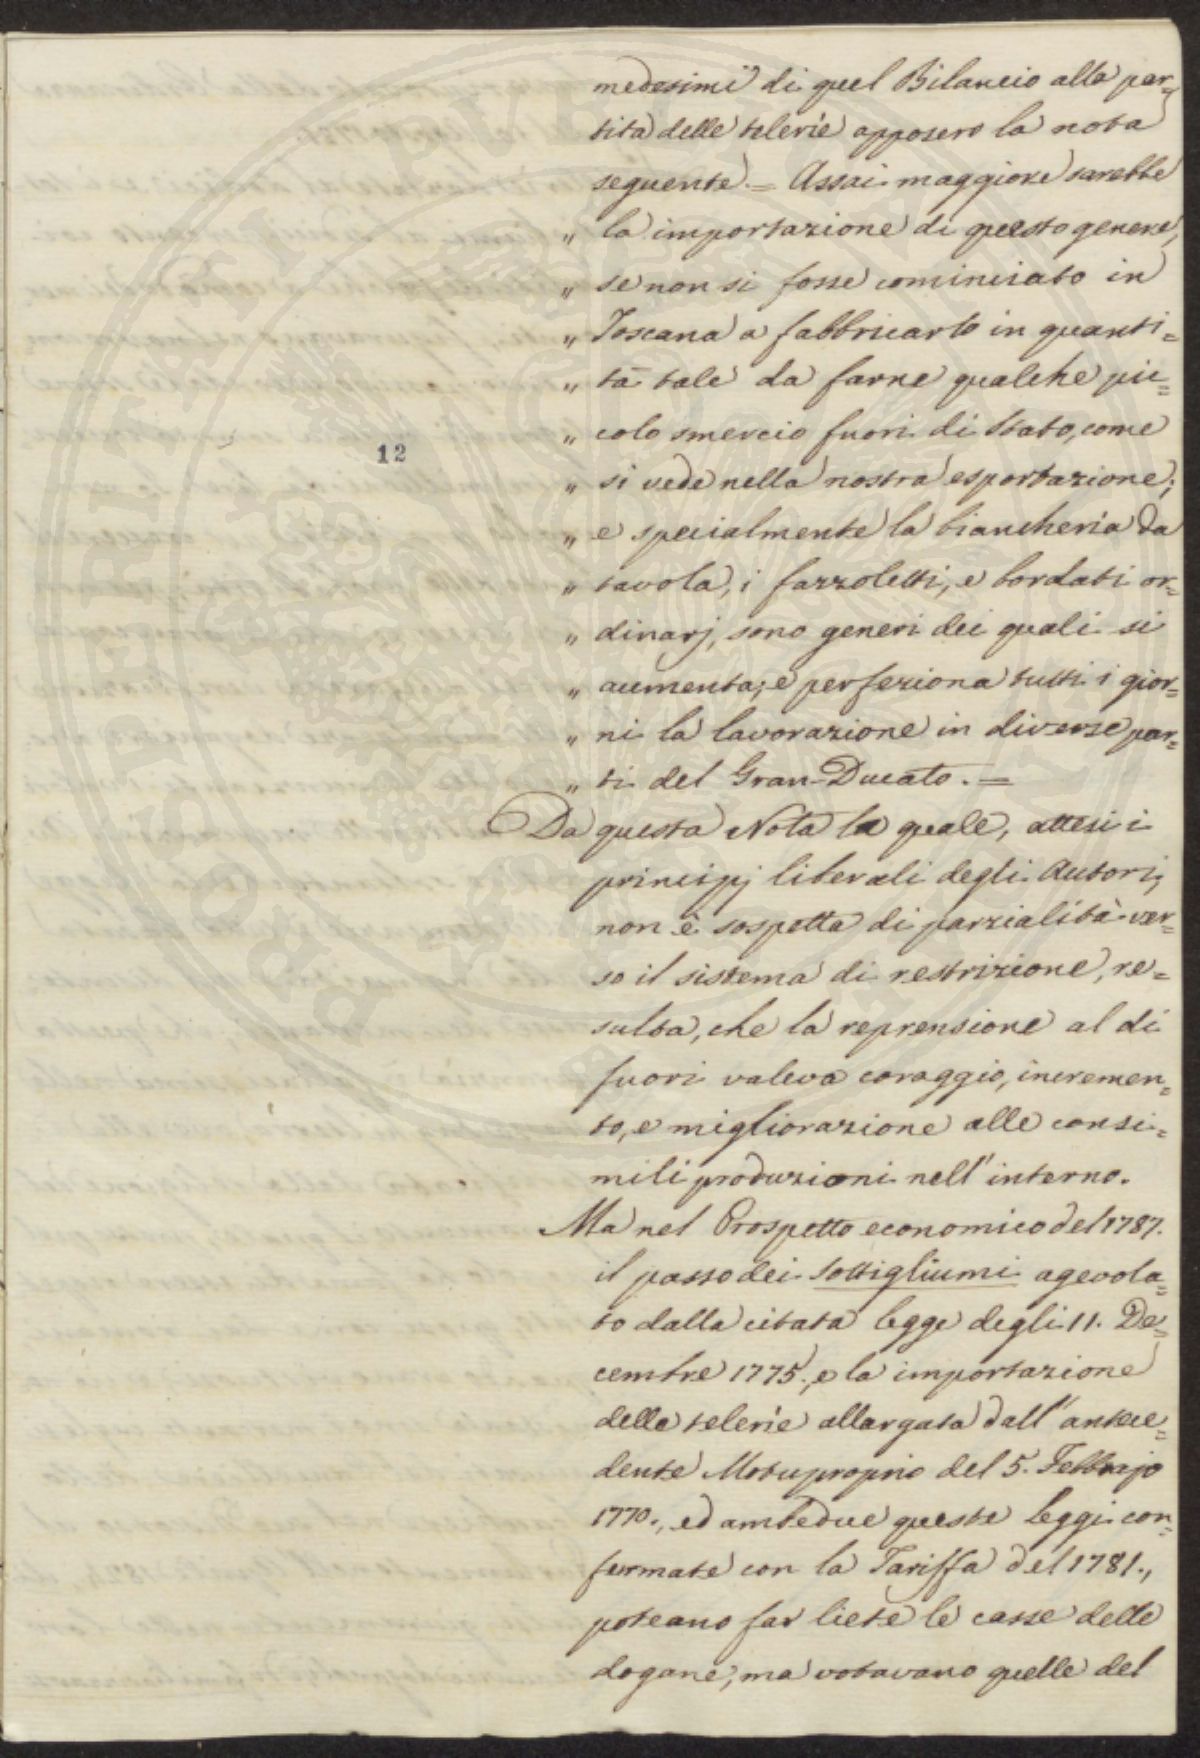 medesimi di quel Bilancio alla par=
tita delle telerie apposero la nota
seguente. = Assai maggiore sarebbe
„ la importazione di questo genere,
„ se non si fosse cominciato in
„ Toscana a fabbricarlo in quanti=
„ tà tale da farne qualche pic=
„ colo smercio fuori di Stato, come
12
„ si vede nella nostra esportazione;
„ e specialmente la biancheria da
„ tavola, i fazzoletti, e bordati or=
„ dinarj, sono generi dei quali si
„ aumenta; e perfeziona tutti i gior=
„ ni la lavorazione in diverse par=
„ ti del Gran-Ducato. =
Da questa Nota la quale, attesi i
principj liberali degli Autori,
non è sospetta di parzialità ver=
so il sistema di restrizione, re=
sulta, che la reprensione al di
fuori valeva coraggio, incremen=
to, e migliorazione alle consi=
mili produzioni nell'interno.
Ma nel Prospetto economico del 1787.
il passo dei sottigliumi agevola=
to dalla citata legge degli 11. De=
cembre 1775., e la importazione
delle telerie allargata dall'antece=
dente Motuproprio del 5. Febbrajo
1770., ed ambedue queste leggi con=
fermate con la Tariffa del 1781.,
poteano far liete le casse delle
dogane; ma votavano quelle del